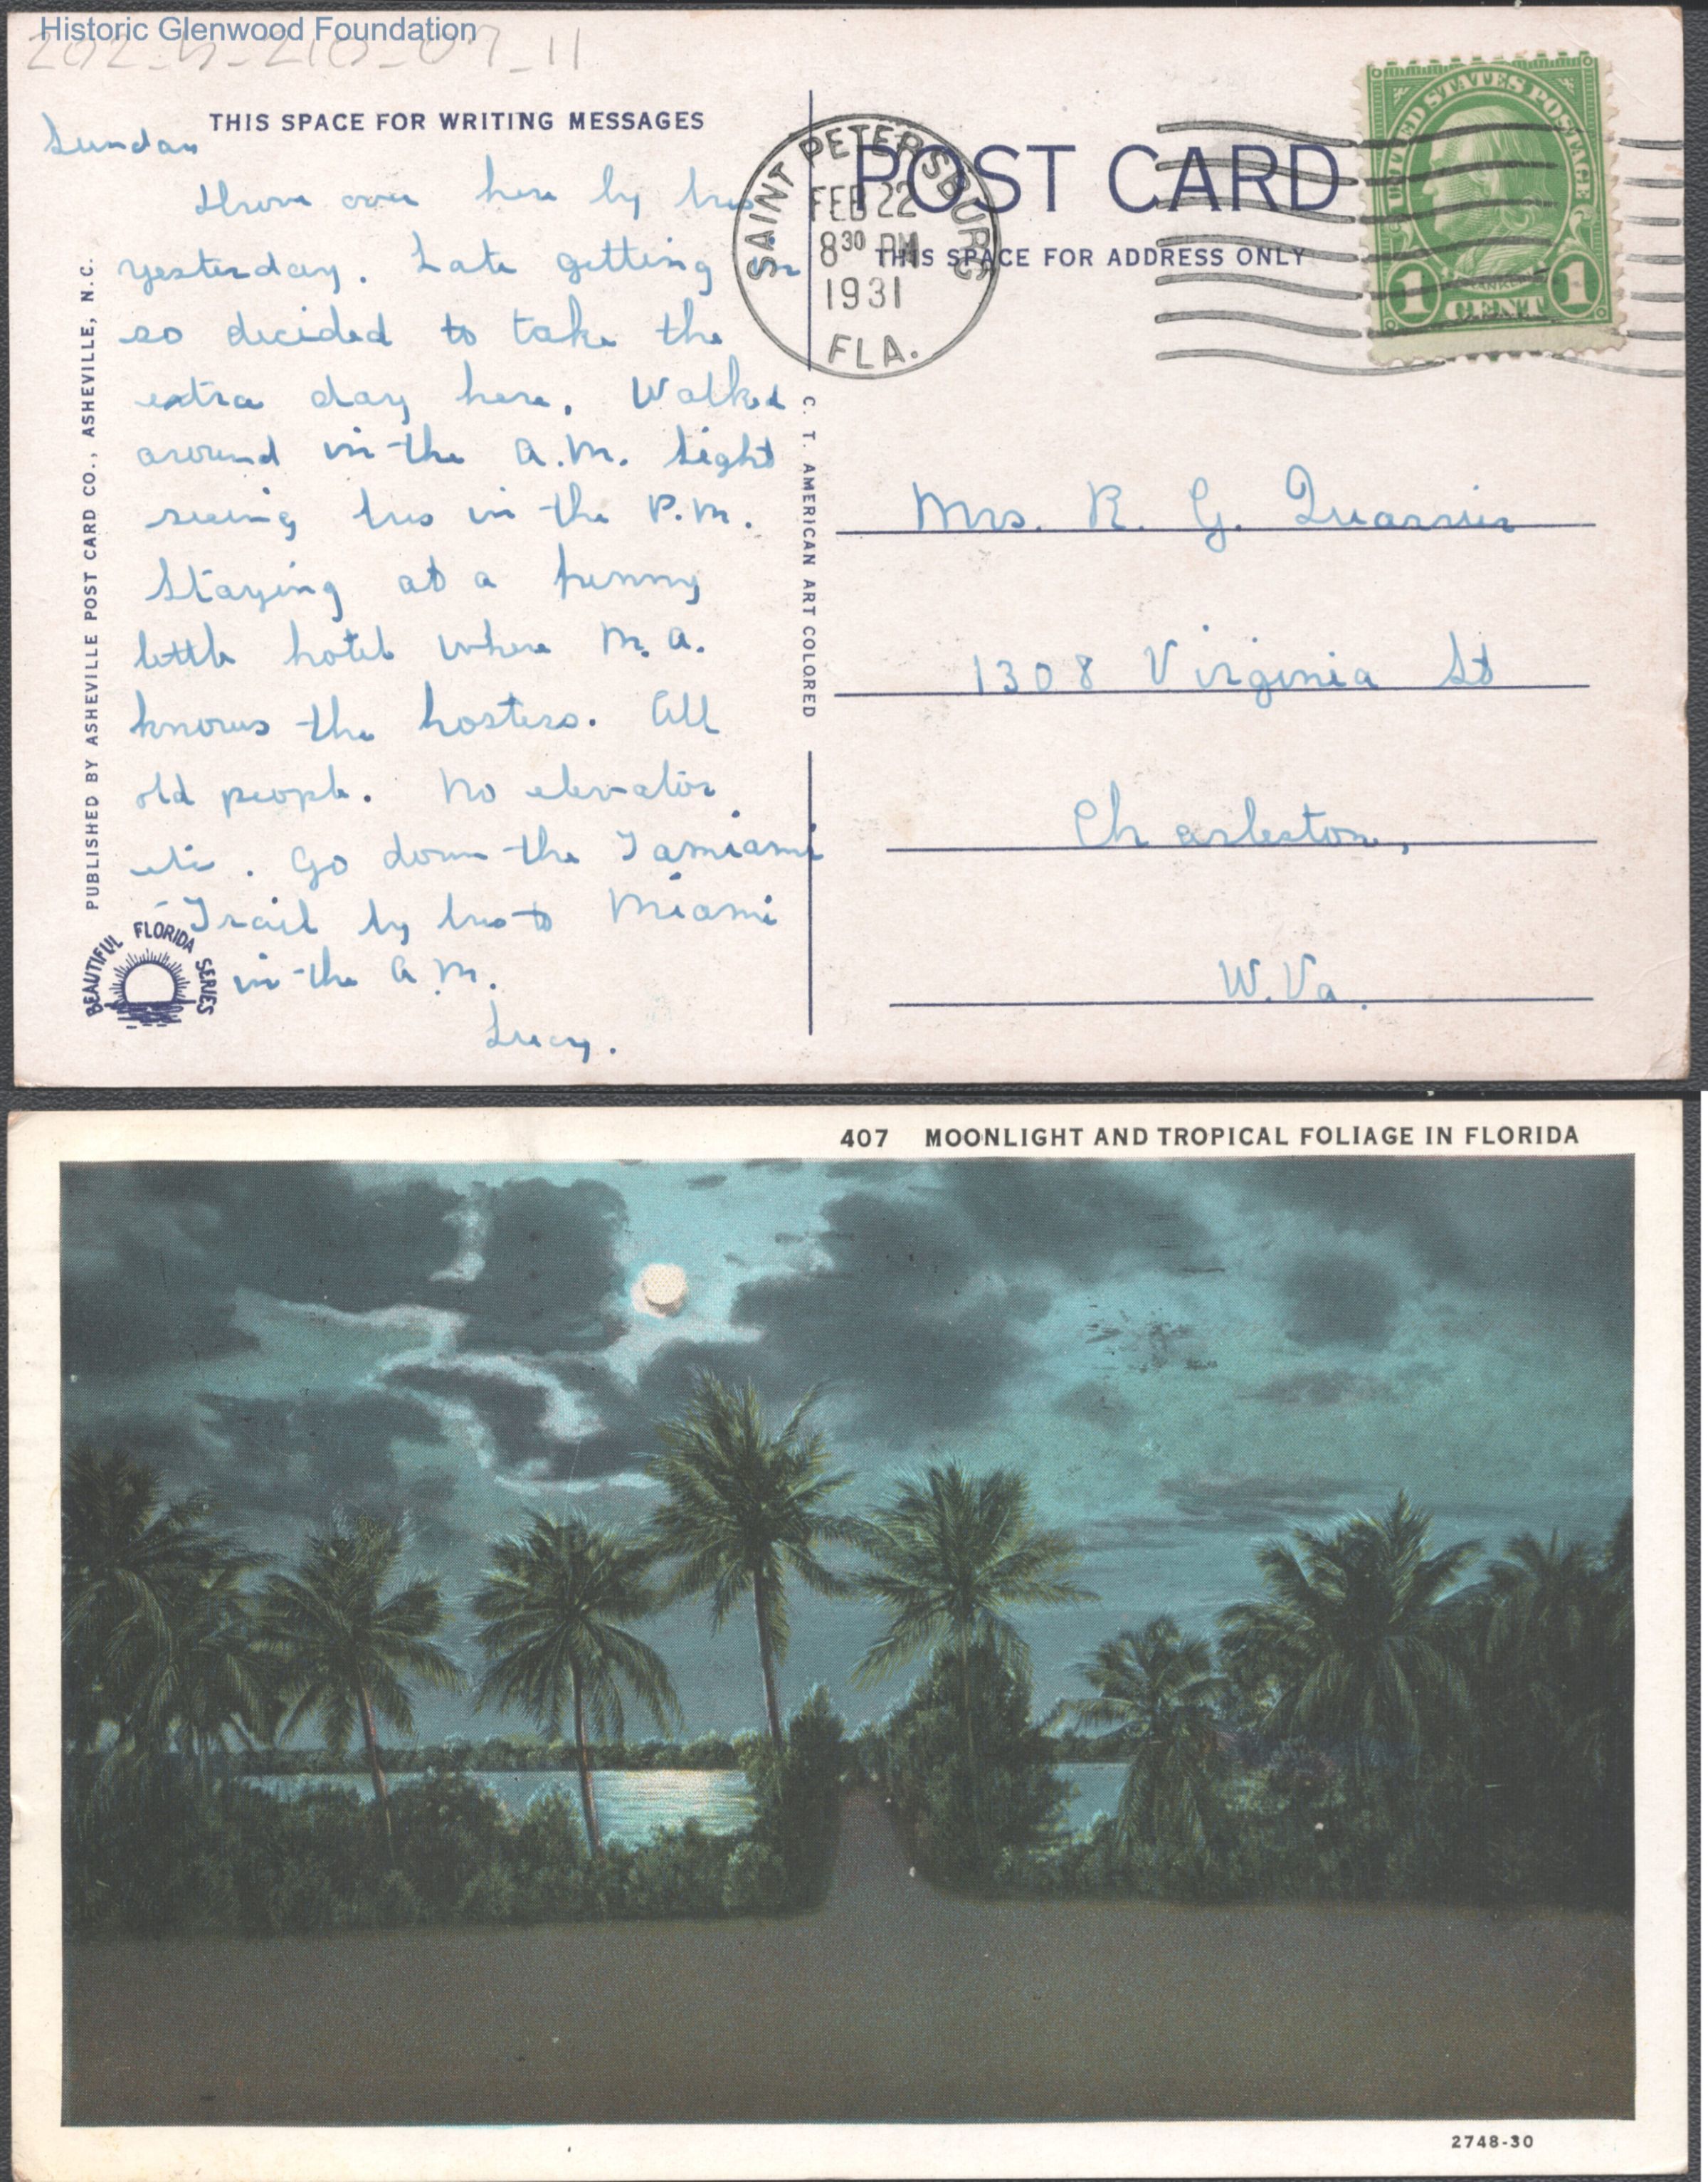 Historic Glenwood Foundation
THIS SPACE FOR WRITING MESSAGES
Sunday
Drove over here by bus
yesterday. Late getting in
so decided to take the
extra day here. Walked
around in the A.M. Sight
seeing bus in the P.M.
Staying at a funny
little hotel where M. A.
knows the hostess. All
old people. No elevator
etc. Go down the Tamiami
Trail by bus to Miami
in the A.M.
Lucy.
PUBLISHED BY ASHEVILLE POST CARD CO., ASHEVILLE, N.C.
BEAUTIFUL FLORIDA SERIES
C. T. AMERICAN ART COLORED
SAINT PETERSBURG
FEB 22
8 30 PM
1931
FLA.
POST CARD
THIS SPACE FOR ADDRESS ONLY
UNITED STATES POSTAGE
FRANKLIN
1 CENT 1
Mrs. R. G. Quarrier
1308 Virginia St
Charleston,
W. Va.
407 MOONLIGHT AND TROPICAL FOLIAGE IN FLORIDA
2748-30